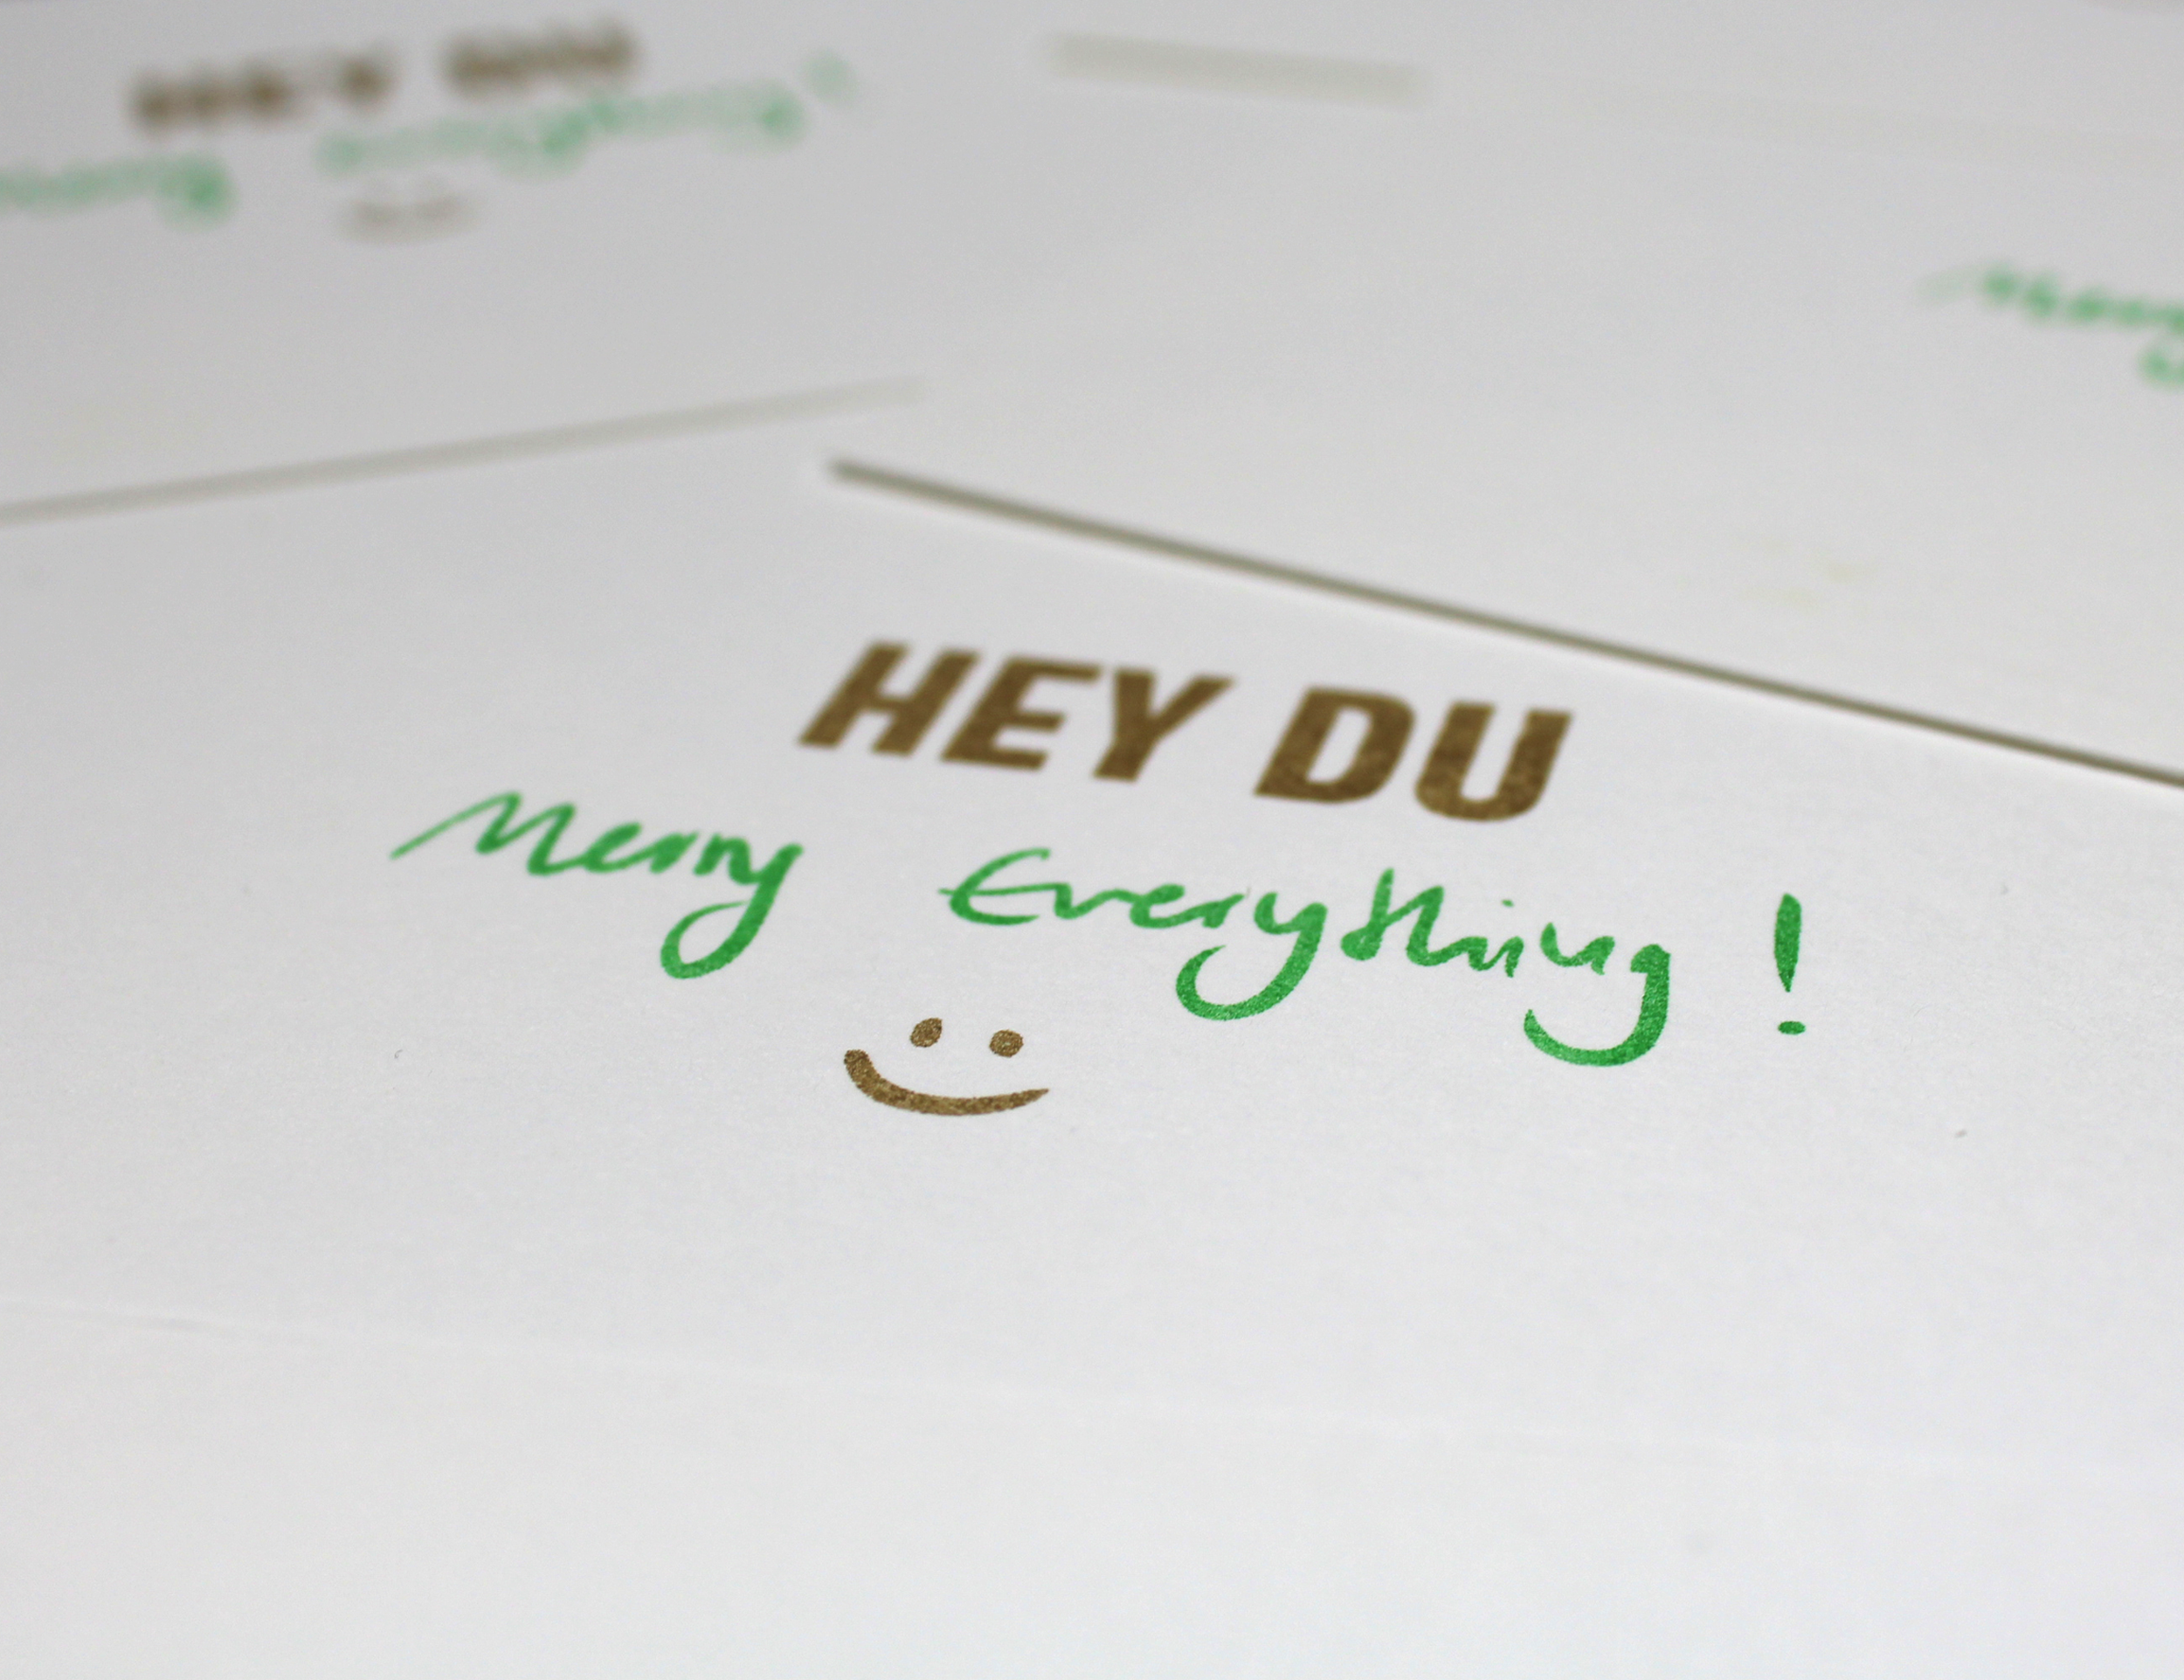 HEY DU
Merry Everything!